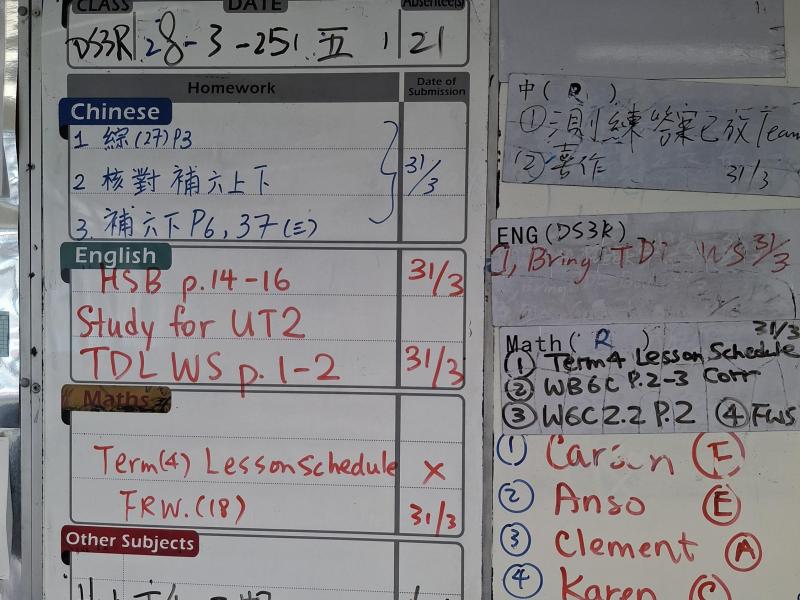 CLASS DATE Absentee(s)
DS3R 28-3-25 五 21
Homework Date of Submission
Chinese
1 綜(27)P3
2 核對 補六上下 31/3
3. 補六下 P6, 37 (三)
English
HSB p.14-16 31/3
Study for UT2
TDL WS p. 1-2 31/3
Maths
Term(4) Lesson Schedule ×
FRW.(18) 31/3
Other Subjects
中( R )
① 測練答案已放Team
② 喜作 31/3
ENG (DS3R)
1, Bring TDL WS 31/3
Math( R ) 31/3
① Term 4 Lesson Schedule
② WB6C P.2-3 Corr
③ W6C 2.2 P.2 ④ FWS
① Carson F
② Anso E
③ Clement A
④ Karen